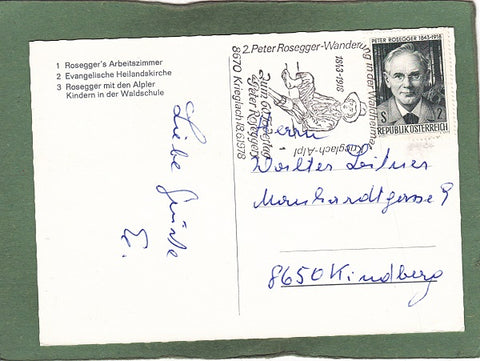 1 Rosegger's Arbeitszimmer
2 Evangelische Heilandskirche
3 Rosegger mit den Alpler
Kindern in der Waldschule
Liebe Grüße
E.
2. Peter Rosegger-Wanderung in der Waldheimat
Krieglach-Alpl
8670 Krieglach 18.6.1978
zum 60. Todestag
Peter Rosegger
1843-1918
PETER ROSEGGER 1843-1918
S 2
REPUBLIK ÖSTERREICH
Herrn
Walter Leitner
8650 Kindberg